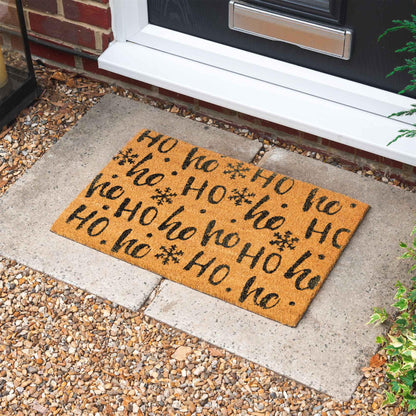 Ho ho Ho ho
ho Ho ho
Ho ho Ho ho Ho
Ho ho Ho ho
ho Ho ho